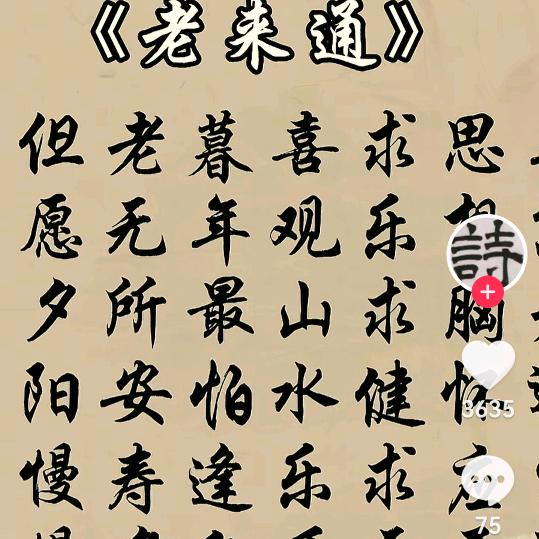 《老来通》
思胸
求乐求健求
喜观山水乐
暮年最怕逢
老无所安寿
但愿夕阳慢
詩
3635
75